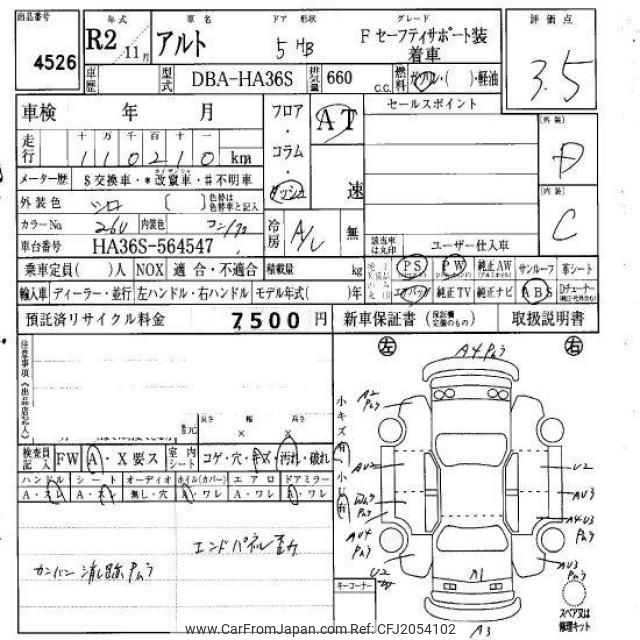 出品番号
4526
年式 車名 ドア 形状 グレード
R2 11月 アルト 5 HB F セーフティサポート装着車
評価点
3.5
車歴 型式 DBA-HA36S 排気量 660 C.C. 燃料 ガソリン・( )・軽油
車検 年 月
フロア・コラム・ダッシュ
AT
速
セールスポイント
(外装)
D
(内装)
C
走行 十 万 千 百 十 一
110210 km
メーター歴 $交換車・*改竄車・#不明車
外装色 シロ 〔 〕 色替は色替車と記入
カラーNo 26U 内装色
冷房 A/C 無
車台番号 HA36S-564547
該当車は丸印 ユーザー仕入車
乗車定員( )人 NOX 適合・不適合 積載量 kg
PS PW 純正AW サンルーフ 革シート
輸入車 ディーラー・並行 左ハンドル・右ハンドル モデル年式( )年
エアバック 純正TV 純正ナビ ABS Dチューナー
預託済リサイクル料金 7500 円 新車保証書 (保証欄完備のもの) 取扱説明書
注意事項《出品店記入》
長さ 幅 高さ
× ×
検査員記入 FW A・X要ス 室内シート コゲ・穴・キズ・汚れ・破れ
ハンドル シート オーディオ ホイル(カバー) エアロ ドアミラー
A・スレ A・スレ 無し・穴 A・ワレ A・ワレ A・ワレ
エンドパネル歪み
カンバン消し跡ムラ
左 右
A4ムラ
小キズ有
小U有
A2
ムラ
AU2
AU4
ムラ
U2
U2
AU3
A4U3
ムラ
AU3
ムラ
A1
A3
キーコーナー
スペア又は修理キット
www.CarFromJapan.com Car Ref No: CFJ2054102